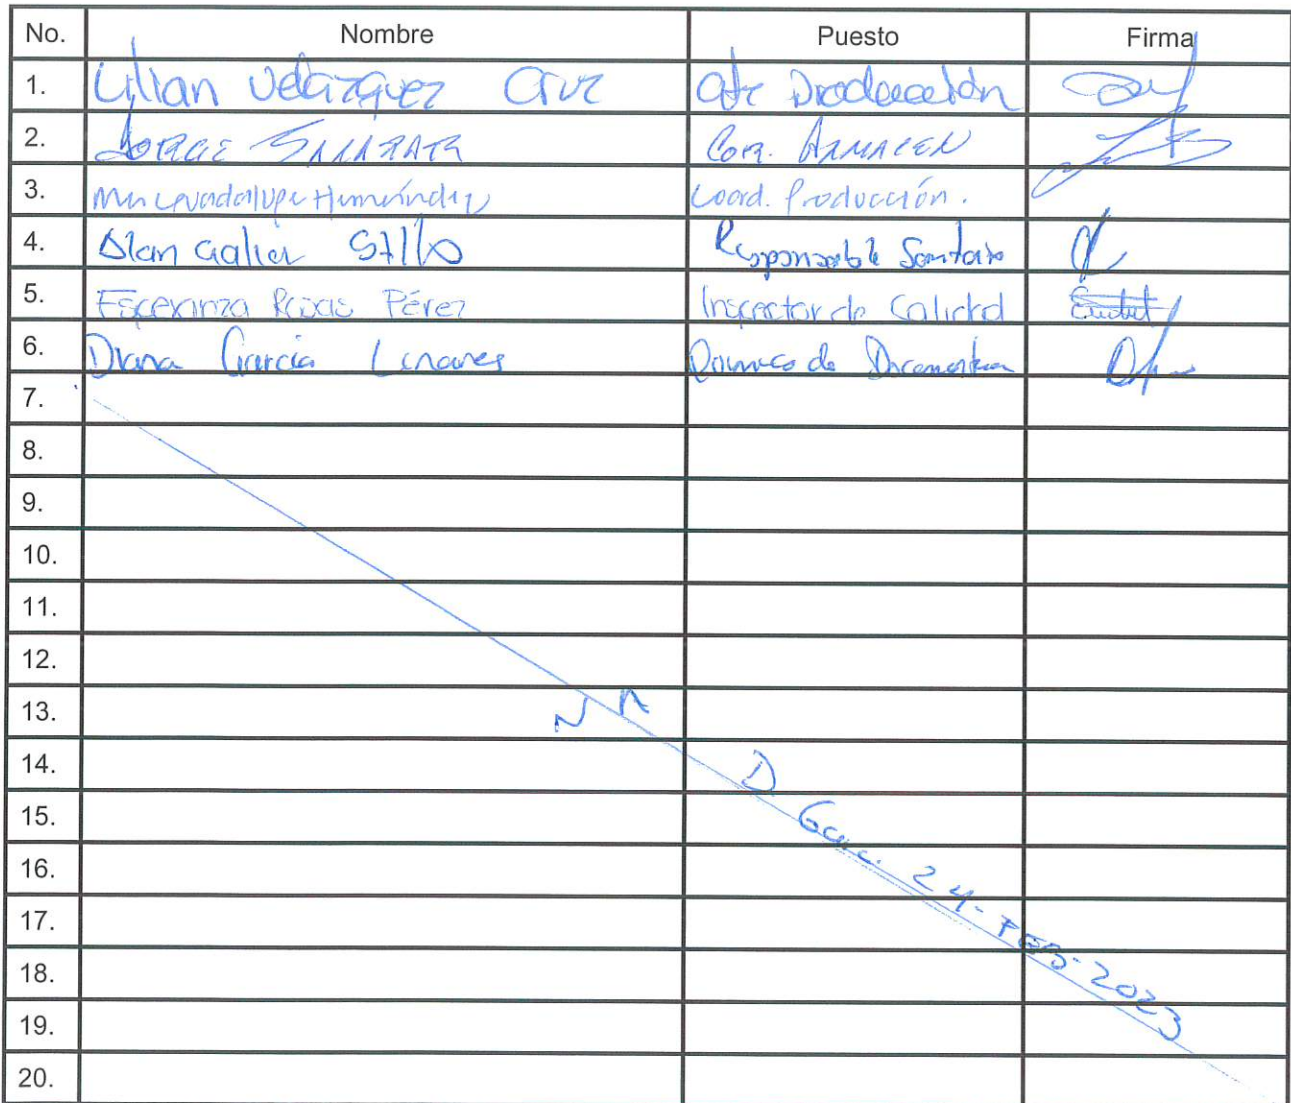 No. Nombre Puesto Firma
1. Lilian Velázquez Cruz Gte Producción
2. JORGE Coor. ALMACEN
3. Ma Guadalupe Hernández Coord. Producción.
4. Alan Galier Responsable Sanitario
5. Esperanza Rojas Pérez Inspector de Calidad
6. Diana García Linares Químico de
7.
8.
9.
10.
11.
12.
13. N A
14. D
15. Garc.
16. 24-
17. FEB-
18. 2023
19.
20.